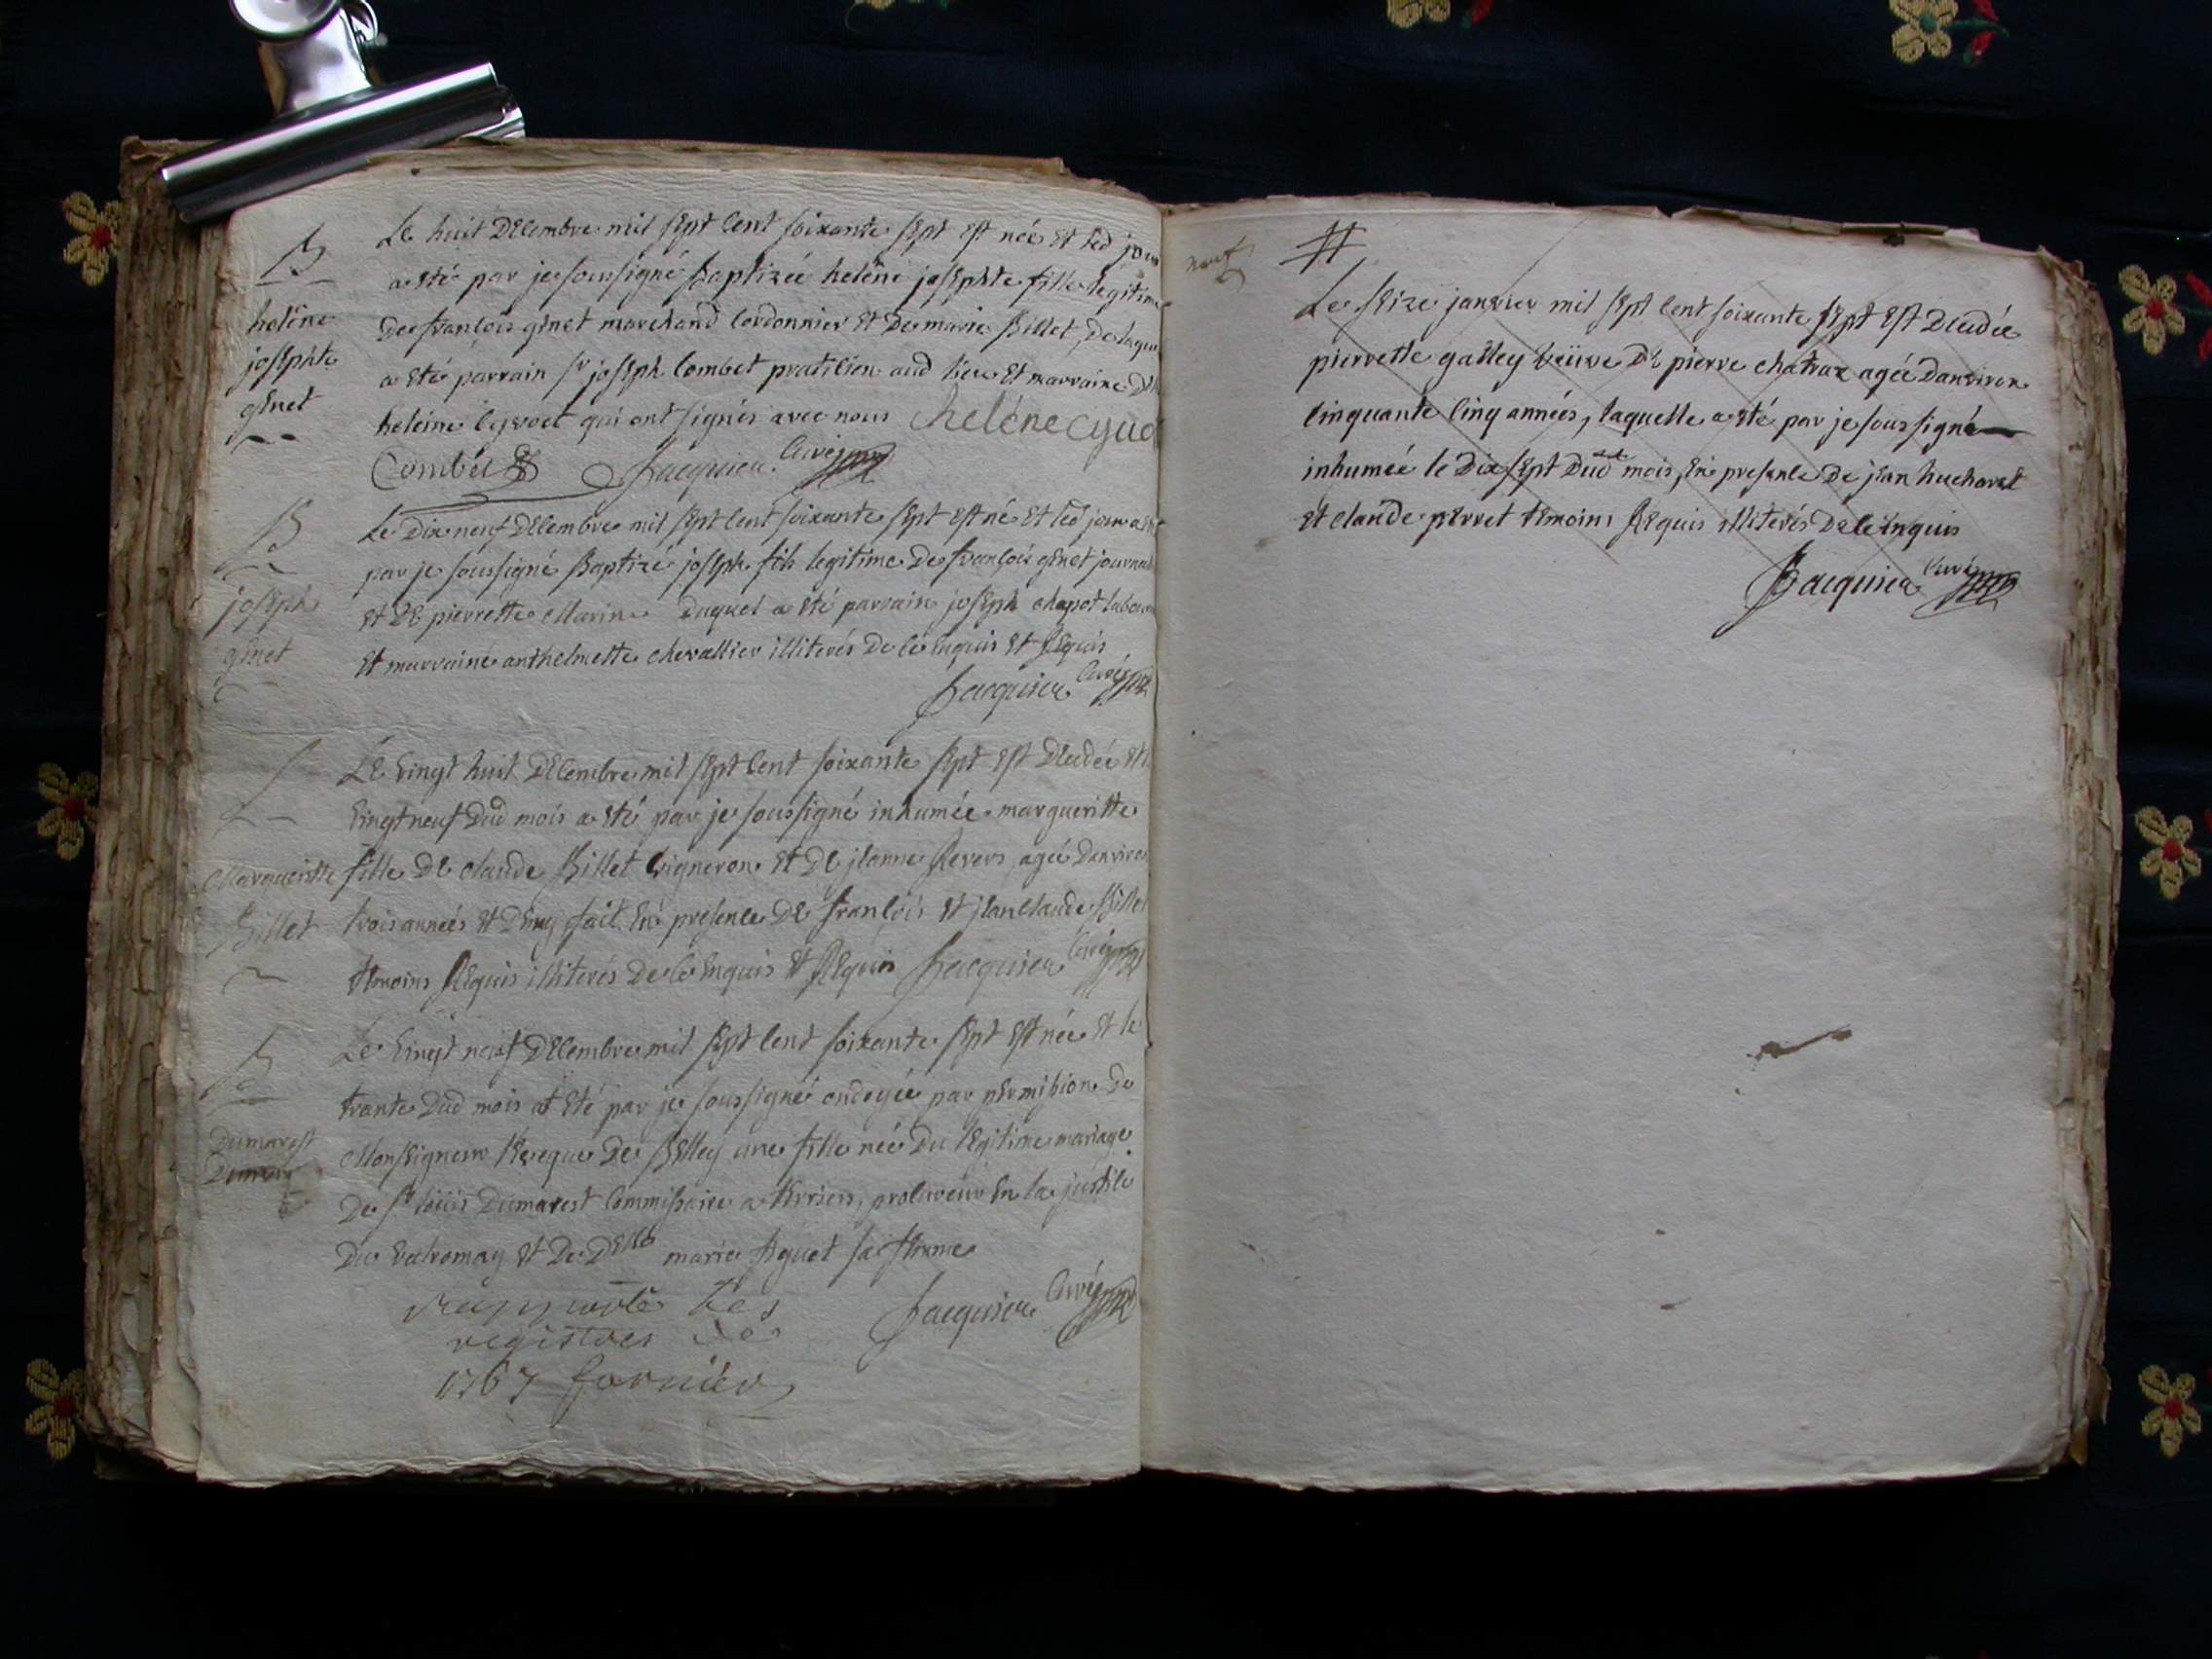 B
helêne
josephte
genet
Le huit Decembre mil sept Cent soixante sept est née et led jour
a eté par je soussigné Baptizée helêne josephte fille legitime
De françois genet marchand Cordonnier et De marie Billet, De laque
a eté parrain sr joseph Combet praticien aud lieu et marraine D
heleine Cyvoct qui ont signés avec nous helène cyvo
Combet Jacquier Curé
B
joseph
genet
Le Dix neuf Decembre mil sept Cent soixante sept est né et led jour a eté
par je soussigné Baptizé joseph fils legitime De françois genet journal
et De pierrette Marin Duquel a eté parrain joseph chapot labou
et marraine anthelmette chevallier illiterés De ce enquis et Requis
Jacquier Curé
S
Margueritte
Billet
Le Vingt huit Decembre mil sept Cent soixante sept est Decedée et l
Vingt neuf Dud mois a eté par je soussigné inhumée margueritte
fille De claude Billet Vigneron et De jeanne Revers agée Danviron
trois années et Demy fait En presence De françois et jean Claude Billet
temoins Requis illiterés De ce Enquis et Requis Jacquier Curé
B
Dumarest
Le Vingt neuf Decembre mil sept Cent soixante sept est née et le
trante Dud mois at eté par je soussigné ondoyée par permission De
Monseigneur l'Eveque De Belley une fille née Du legitime mariage
De sr loüis Dumarest Commissaire a terriers, procureur En la justice
Du Valromay et De Delle marie Aguet sa femme
Jacquier Curé
raporté les
registres de
1767 fornier
neuf
Le seize janvier mil sept Cent soixante sept est Decedée
pierrette galley Veüve De pierre chatrax agée Danviron
Cinquante Cinq années, laquelle a eté par je soussigné
inhumée le Dix sept Dud mois, En presence De jean hucharet
et claude perret temoins Requis illiterés De ce Enquis
Jacquier Curé